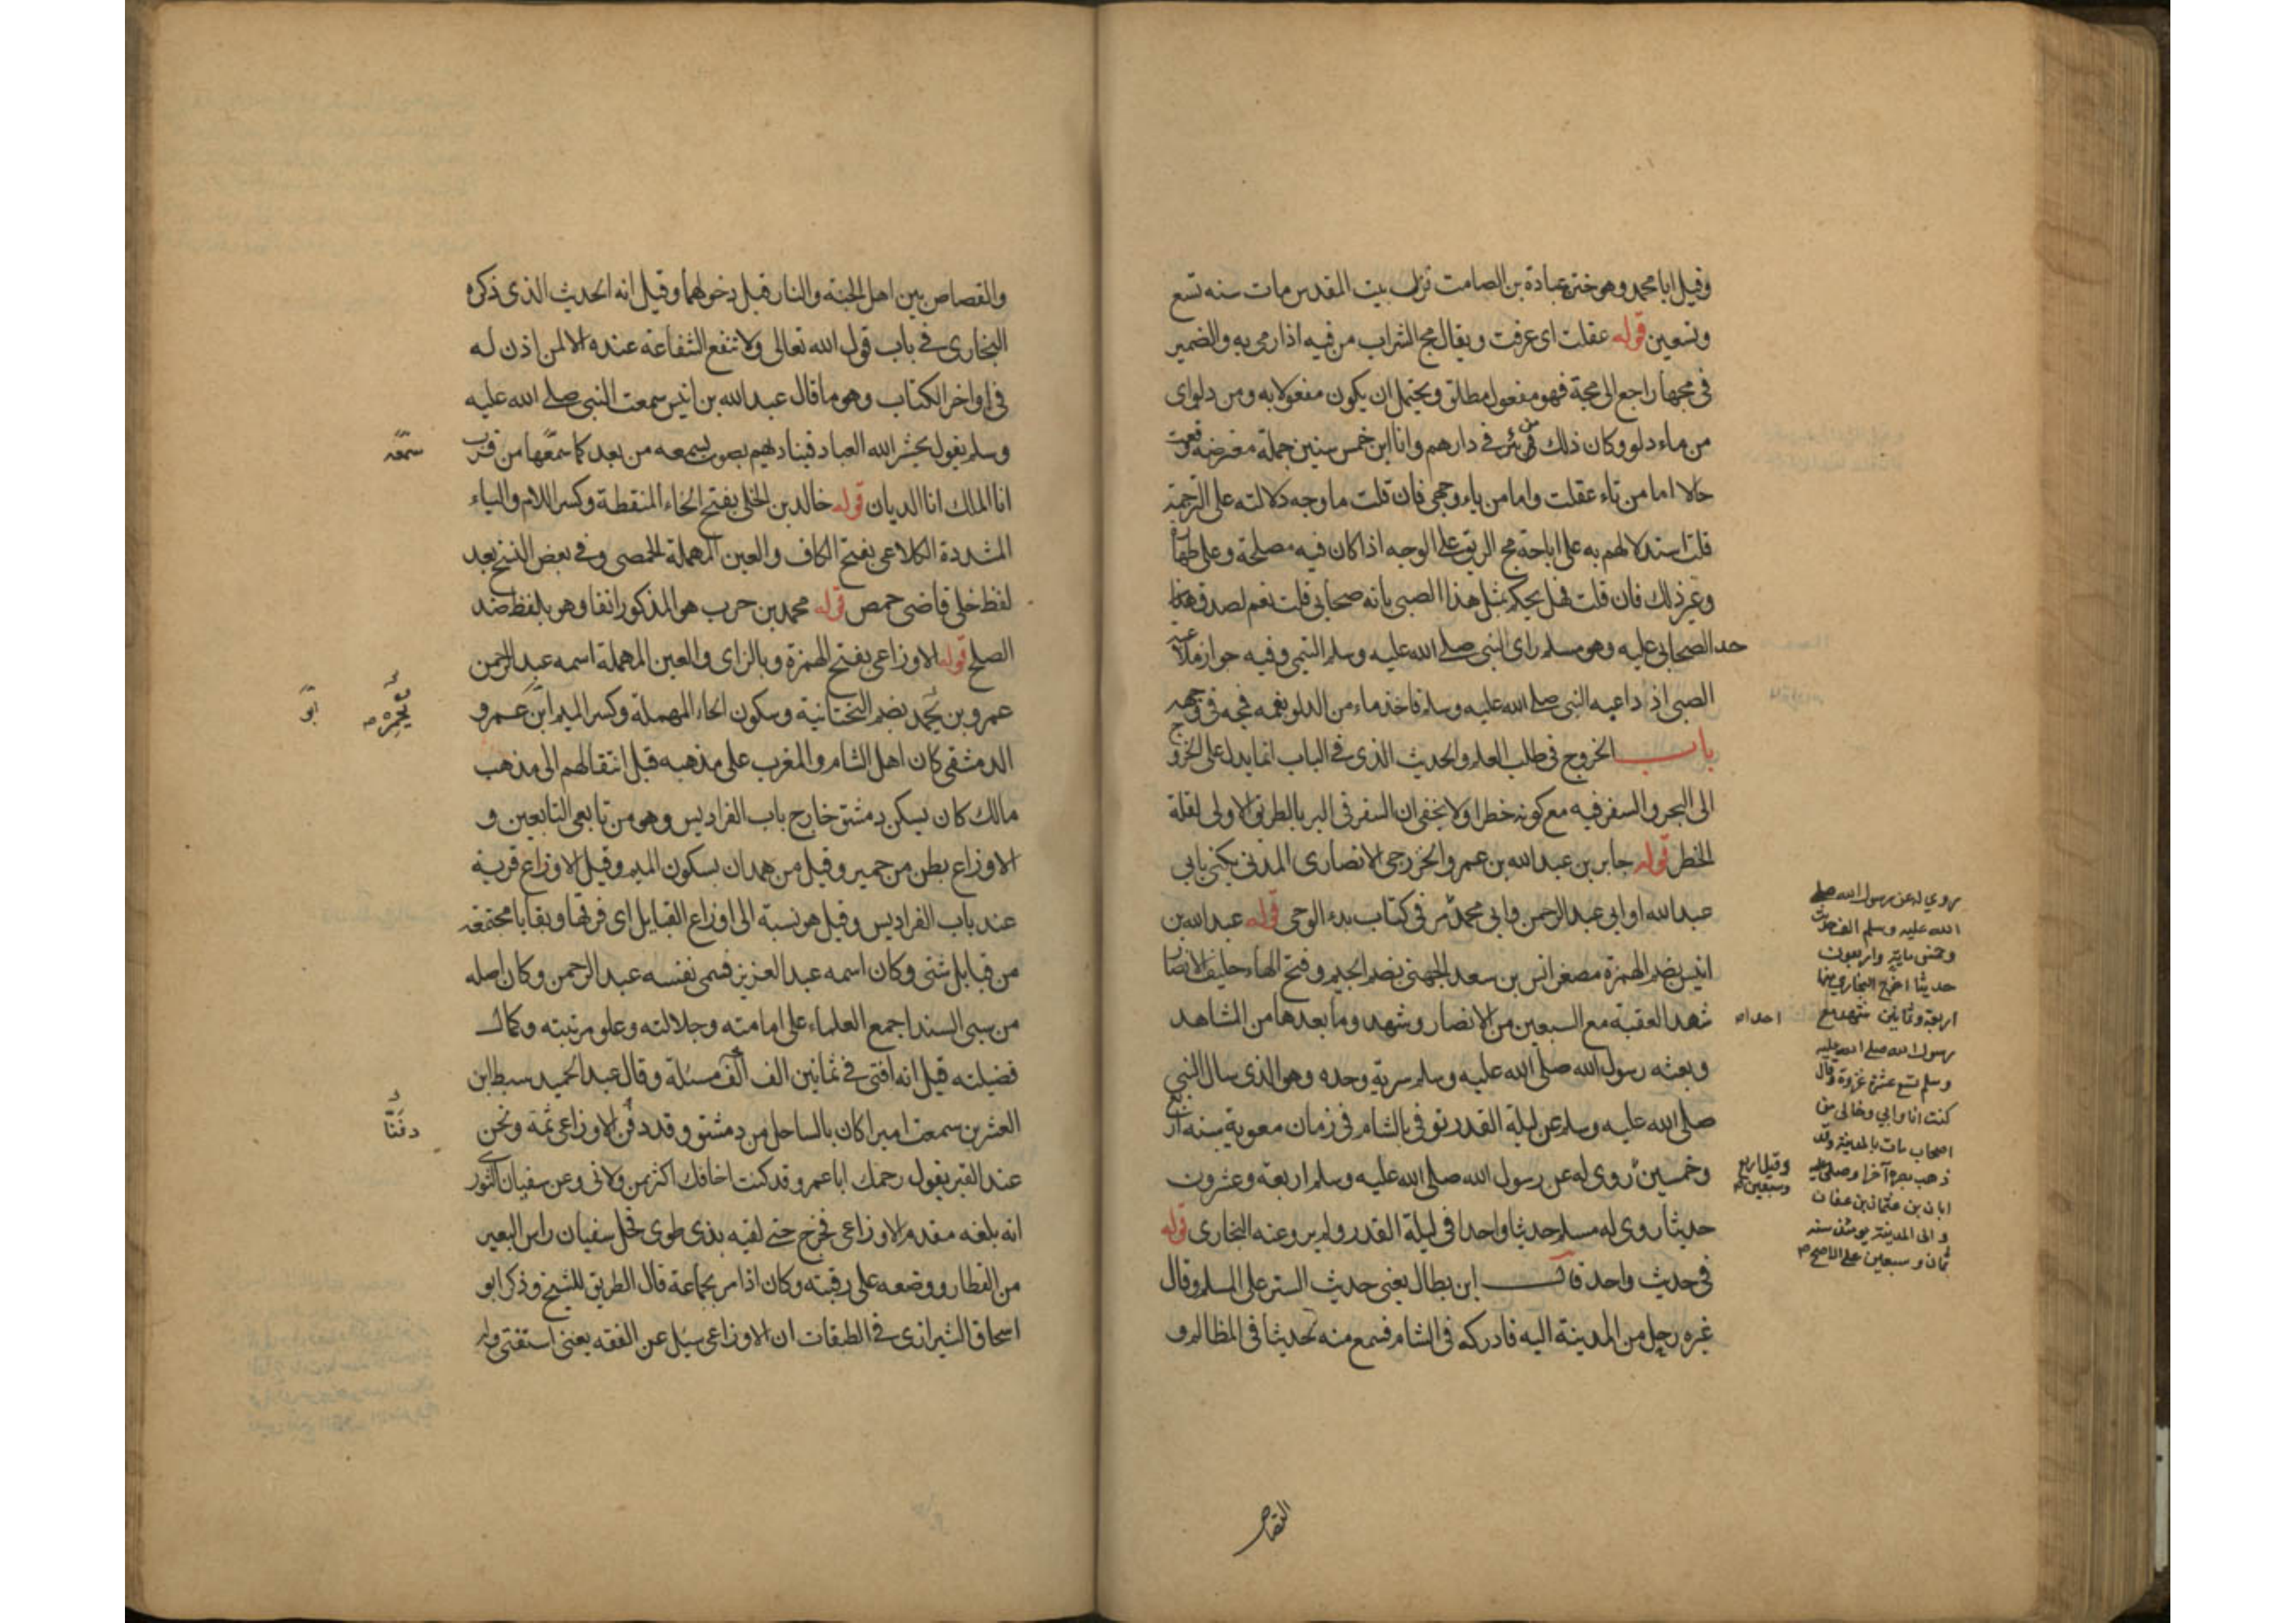 وقيل ابا محمد وهو ختن عبادة بن الصامت نزل بيت المقدس مات سنه تسع
وتسعين قوله عقلت اى عرفت ويقال مج الشراب من فيه اذا رمى به والضمير
فى مجها راجع الى مجة فهو مفعول مطلق ويحتمل ان يكون مفعولا به ومن دلو اى
من ماء دلو وكان ذلك من بئر فى دارهم وانا ابن خمس سنين جملة معترضة وقعت
حالا اما من تاء عقلت واما من ياء وجهى فان قلت ما وجه دلالته على الترجمة
قلت استدلالهم به على اباحة مج الريق على الوجه اذا كان فيه مصلحة وعلى طهارته
وغير ذلك فان قلت فهل يحكم بمثل هذا الصبى بانه صحابى قلت نعم لصدق هذا
حد الصحابى عليه وهو مسلم راى النبى صلى الله عليه وسلم التيمى وفيه جواز ملاعبه
الصبى اذ داعبه النبى صلى الله عليه وسلم فاخذ ماء من الدلو بفمه فمجه فى وجهه
باب الخروج فى طلب العلم والحديث الذى فى الباب انما يدل على الخروج
الى البحر والسفر فيه مع كونه خطرا ولا يخفى ان السفر فى البر بالطريق الاولى لقلة
الخطر قوله جابر بن عبد الله بن عمرو الخزرجى الانصارى المدنى يكنى بابى
عبد الله او ابى عبد الرحمن وابى محمد مر فى كتاب بدء الوحى قوله عبد الله بن
انيس بضم الهمزة مصغر انس بن سعد الجهنى بضم الجيم وفتح الهاء حليف الانصار
شهد العقبة مع السبعين من الانصار وشهد وما بعدها من المشاهد
احدا صح
وبعثه رسول الله صلى الله عليه وسلم سرية وحده وهو الذى سال النبى
صلى الله عليه وسلم عن ليلة القدر توفى بالشام فى زمان معوية سنه اربع
وخمسين روى له عن رسول الله صلى الله عليه وسلم اربعة وعشرون
وقيل اربع
وسبعين صح
حديثا روى له مسلم حديثا واحدا فى ليلة القدر ولم يرو عنه البخارى قوله
فى حديث واحد قال ابن بطال يعنى حديث الستر على المسلم وقال
غيره رحل من المدينة اليه فادركه فى الشام فسمع منه حديثا فى المظالم و
روي له عن رسول الله صلى
الله عليه وسلم الف حديث
وخمس ماية واربعون
حديثا اخرج البخاري منها
اربعة وثمانين شهد مع
رسول الله صلى الله عليه
وسلم تسع عشرة غزوة وقال
كنت انا وابي وخالى من
اصحاب مات بالمدينة وقد
ذهب بصره آخرا وصلى عليه
ابان بن عثمان بن عفان
والى المدينة يومئذ سنه
ثمان وسبعين على الاصح صح
القصاص
والقصاص بين اهل الجنة والنار قبل دخولهما وقيل انه الحديث الذى ذكره
البخارى فى باب قول الله تعالى ولا تنفع الشفاعة عنده الا لمن اذن له
فى اواخر الكتاب وهو ما قال عبد الله بن انيس سمعت النبى صلى الله عليه
وسلم يقول يحشر الله العباد فيناديهم بصوت يسمعه من بعد كما سمعها من قرب
سمعه
انا الملك انا الديان قوله خالد بن الخلى بفتح الخاء المنقطة وكسر اللام والياء
المشددة الكلاعى بفتح الكاف والعين المهملة الحمصى وفى بعض النسخ بعد
لفظ خلى قاضى حمص قوله محمد بن حرب هو المذكور انفا وهو بلفظ ضد
الصلح قوله الاوزاعى بفتح الهمزة وبالزاى والعين المهملة اسمه عبد الرحمن
عمرو بن يحمد بضم التحتانية وسكون الحاء المهملة وكسر الميم ابن عمرو
ابو
الدمشقى كان اهل الشام والمغرب على مذهبه قبل انتقالهم الى مذهب
مالك كان يسكن دمشق خارج باب الفراديس وهو من تابعى التابعين و
الاوزاع بطن من حمير وقيل من همدان بسكون الميم وقيل الاوزاع قرية
عند باب الفراديس وقيل هو نسبة الى اوزاع القبايل اى فرقها وبقايا مجتمعه
من قبايل شتى وكان اسمه عبد العزيز فسمى نفسه عبد الرحمن وكان اصله
من سبى السند اجمع العلماء على امامته وجلالته وعلو مرتبته وكمال
فضيلته قيل انه افتى فى ثمانين الف الف مسئلة وقال عبد الحميد سبط ابن
العشرين سمعت اميرا كان بالساحل من دمشق وقد دفن الاوزاعى ثمة ونحن
دفنّا
عند القبر يقول رحمك ابا عمرو قد كنت اخافك اكثر ممن ولانى وعن سفيان الثورى
انه بلغه مقدم الاوزاعى فخرج حتى لقيه بذى طوى فحل سفيان راس البعير
من القطار ووضعه على رقبته وكان اذا مر بجماعة قال الطريق للشيخ وذكر ابو
اسحاق الشيرازى فى الطبقات ان الاوزاعى سئل عن الفقه يعنى استفتى وله